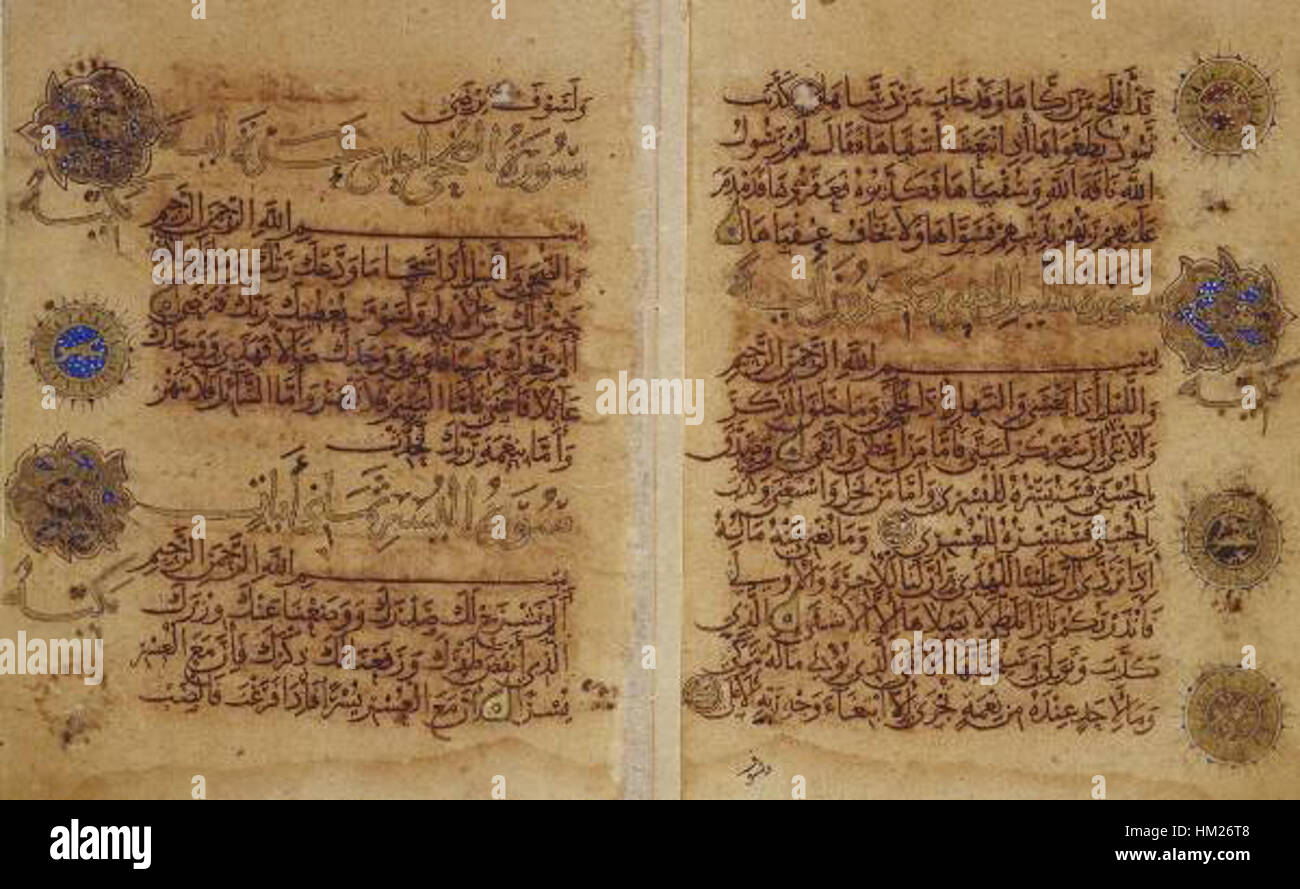 قد أفلح من زكاها وقد خاب من دساها كذبت
ثمود بطغواها إذ انبعث أشقاها فقال لهم رسول
الله ناقة الله وسقياها فكذبوه فعقروها فدمدم
عليهم ربهم بذنبهم فسواها ولا يخاف عقباها
سورة الليل
مكية
بسم الله الرحمن الرحيم
والليل إذا يغشى والنهار إذا تجلى وما خلق الذكر
والأنثى إن سعيكم لشتى فأما من أعطى واتقى وصدق
بالحسنى فسنيسره لليسرى وأما من بخل واستغنى وكذب
بالحسنى فسنيسره للعسرى وما يغني عنه ماله
إذا تردى إن علينا للهدى وإن لنا للآخرة والأولى
فأنذرتكم نارا تلظى لا يصلاها إلا الأشقى الذي
كذب وتولى وسيجنبها الذي يؤتي ماله يتزكى
وما لأحد عنده من نعمة تجزى إلا ابتغاء وجه ربه الأعلى
ولسوف يرضى
سورة الضحى إحدى عشرة آية
مكية
بسم الله الرحمن الرحيم
والضحى والليل إذا سجى ما ودعك ربك وما قلى
خير لك من الأولى ولسوف يعطيك ربك فترضى
ألم يجدك يتيما فآوى ووجدك ضالا فهدى ووجدك
عائلا فأغنى فأما اليتيم فلا تقهر وأما السائل فلا تنهر
وأما بنعمة ربك فحدث
سورة ثماني آيات
مكية
بسم الله الرحمن الرحيم
ألم نشرح لك صدرك ووضعنا عنك وزرك
الذي أنقض ظهرك ورفعنا لك ذكرك فإن مع العسر
يسرا إن مع العسر يسرا فإذا فرغت فانصب
alamy
a
alamy
Image ID: HM26T8
www.alamy.com